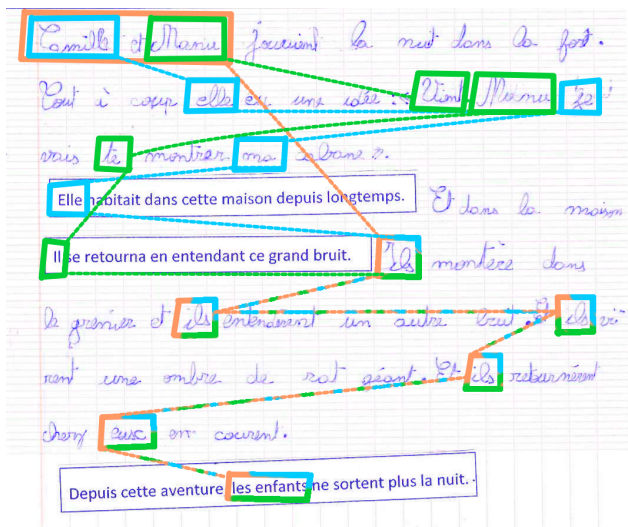 Camille et Manu jouaient la nuit dans la foret.
Tout à coup elle eu une idée : « Vient Manu je
vais te montrer ma cabane ».
Elle habitait dans cette maison depuis longtemps.
Et dans la maison
Il se retourna en entendant ce grand bruit.
ils montère dans
le grenier et ils entendèrent un autre bruit. Et ils vi
rent une ombre de rat géant. Et ils retournèrent
cherz eusc en courent.
Depuis cette aventure les enfants ne sortent plus la nuit.